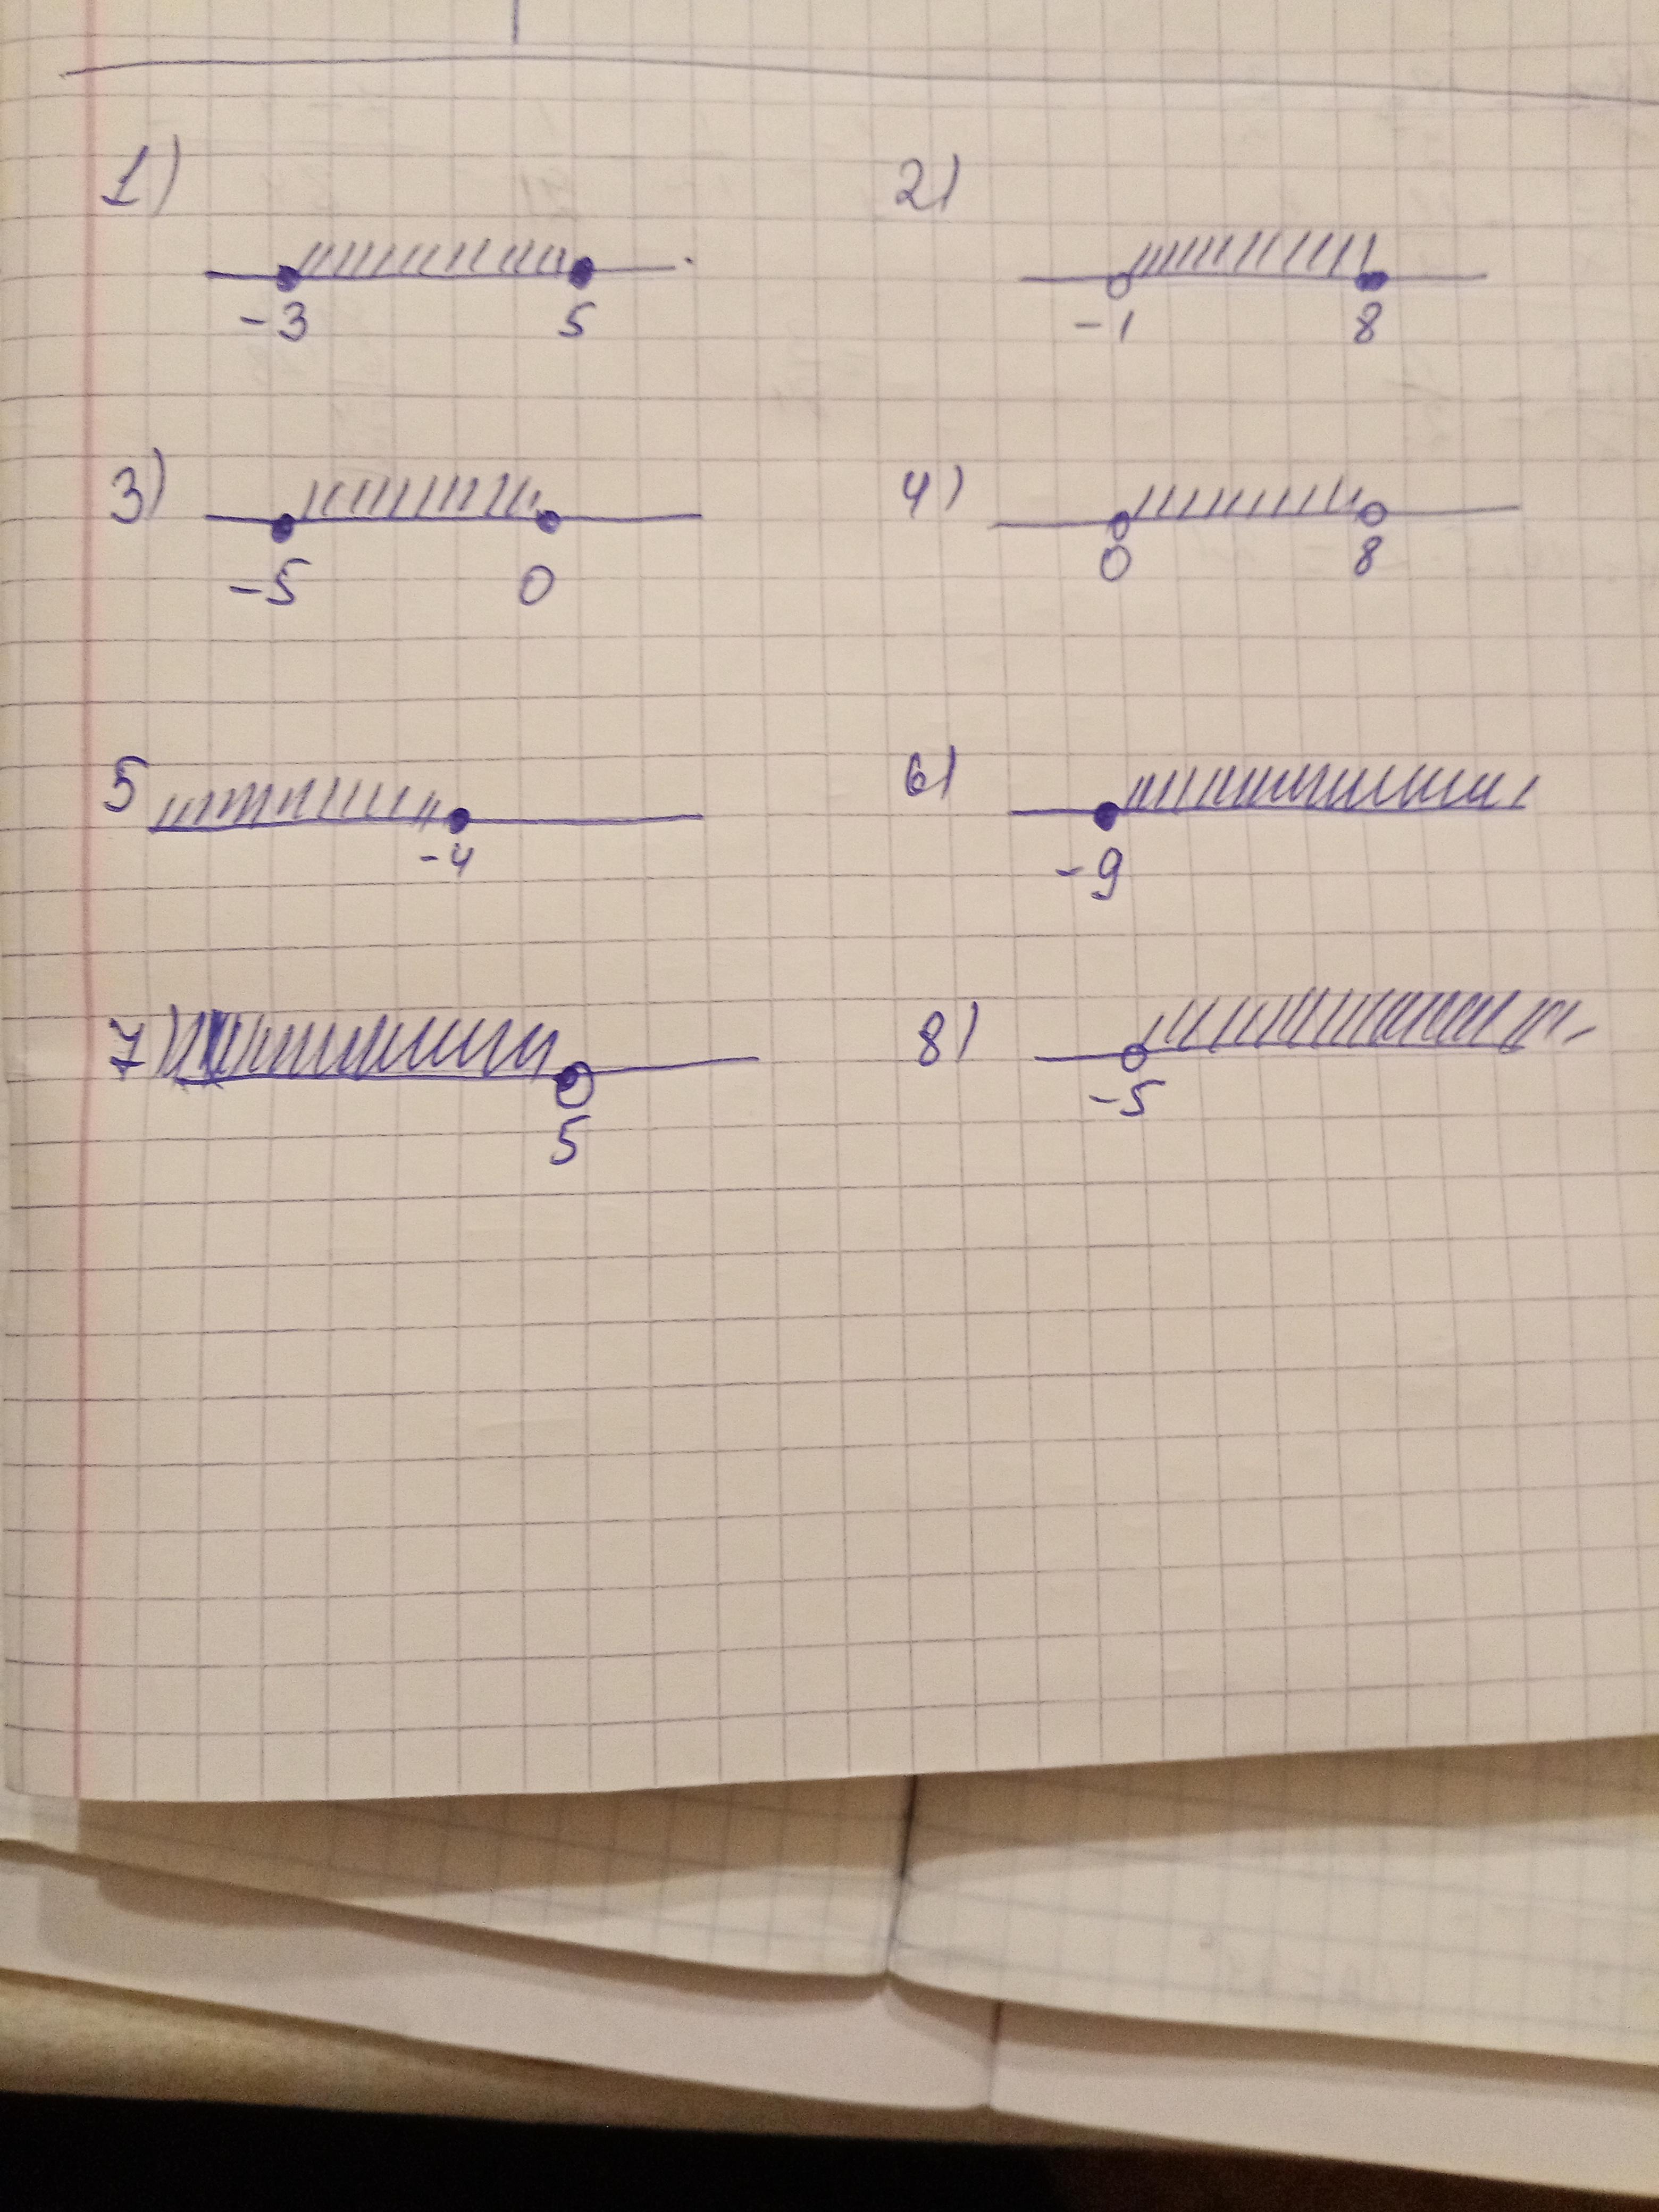 1) 2)
-3 5 -1 8
3) 4)
-5 0 0 8
5 6)
-4 -9
7) 8)
5 -5